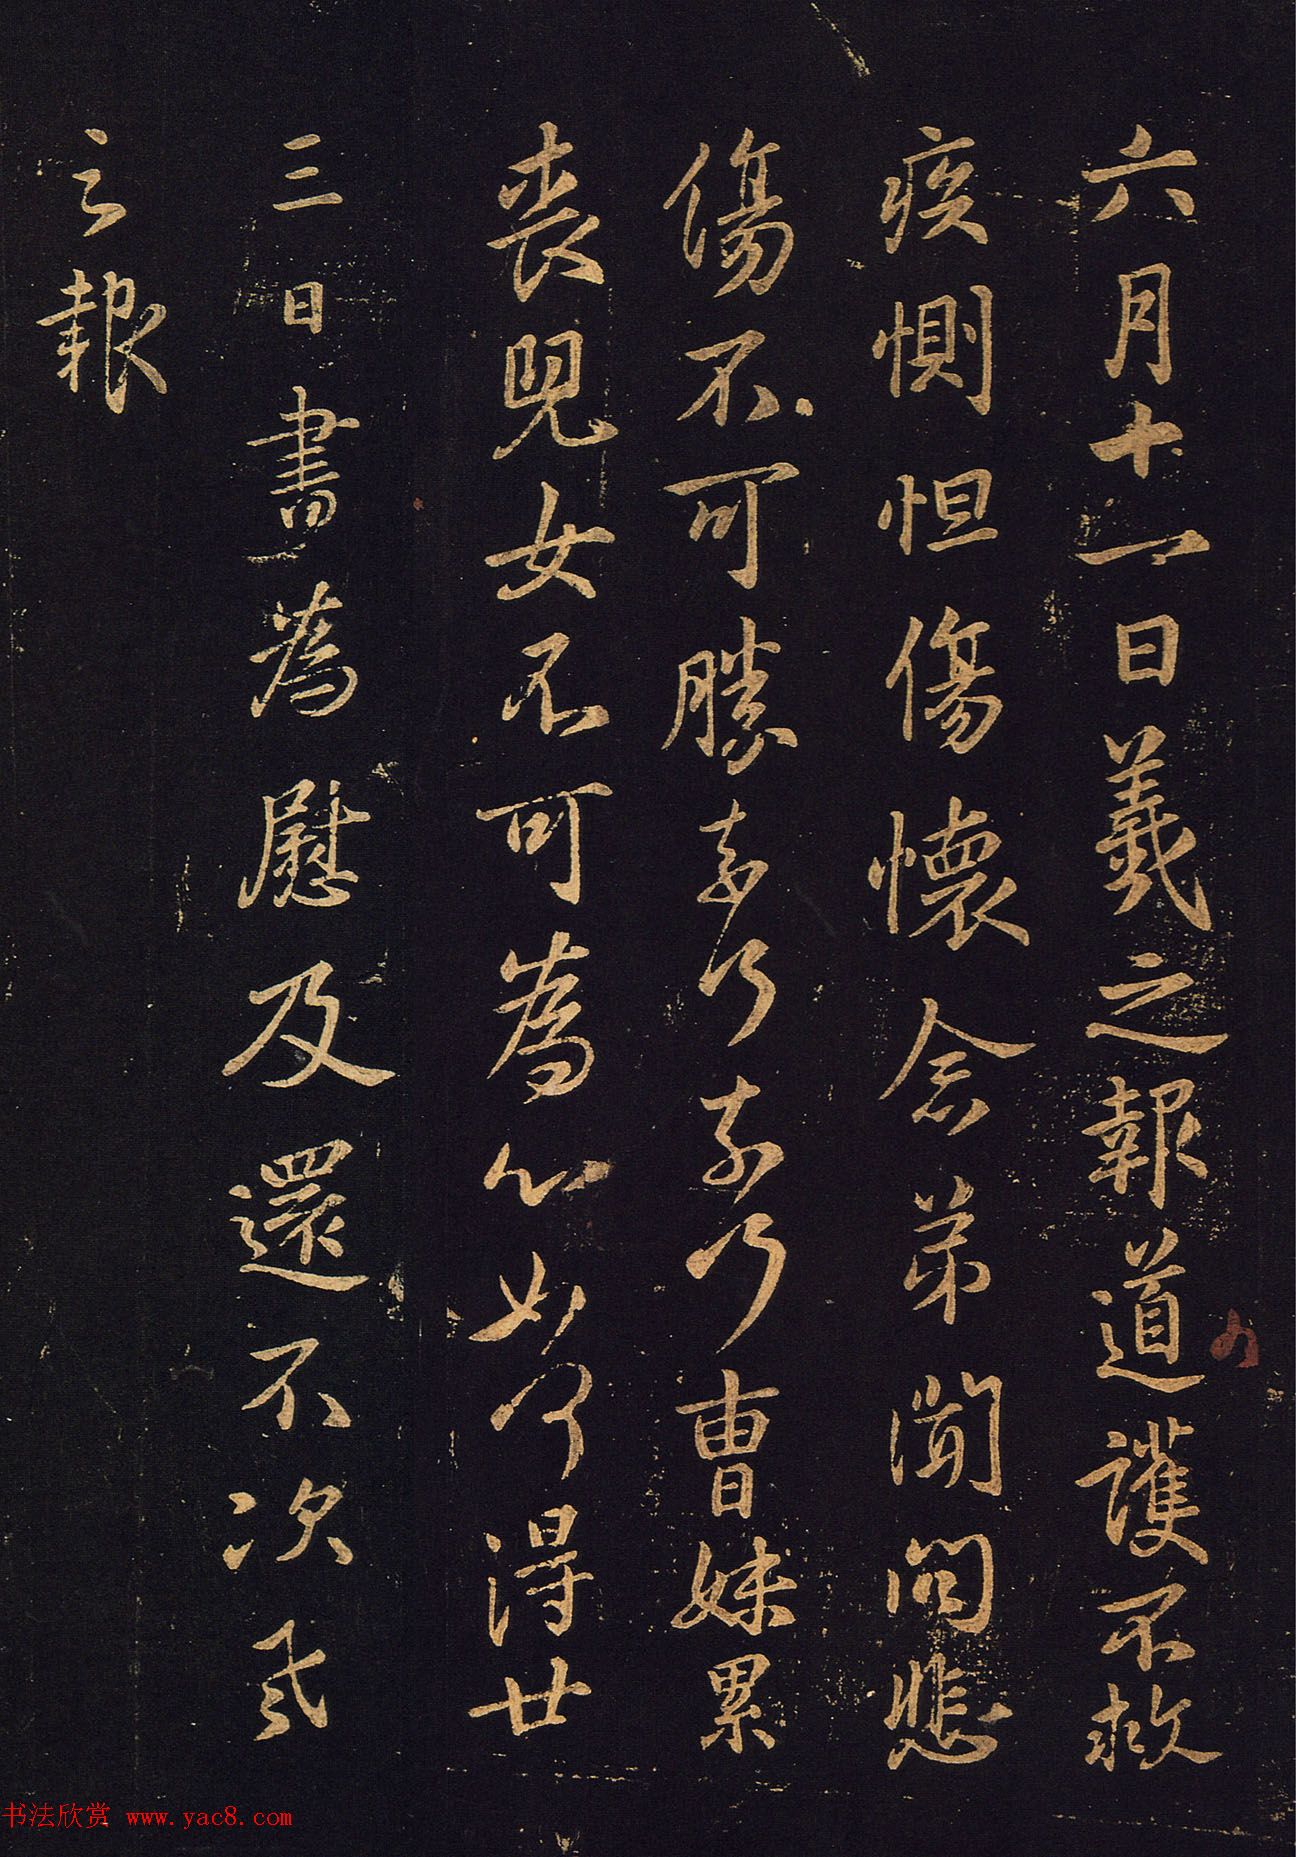 六月十一日羲之報道護不救
疾惻怛傷懷念弟聞問悲
傷不可勝奈何奈何曹妹累
喪兒女不可為心如何得廿
三日書為慰及還不次羲
之報
书法欣赏 www.yac8.com